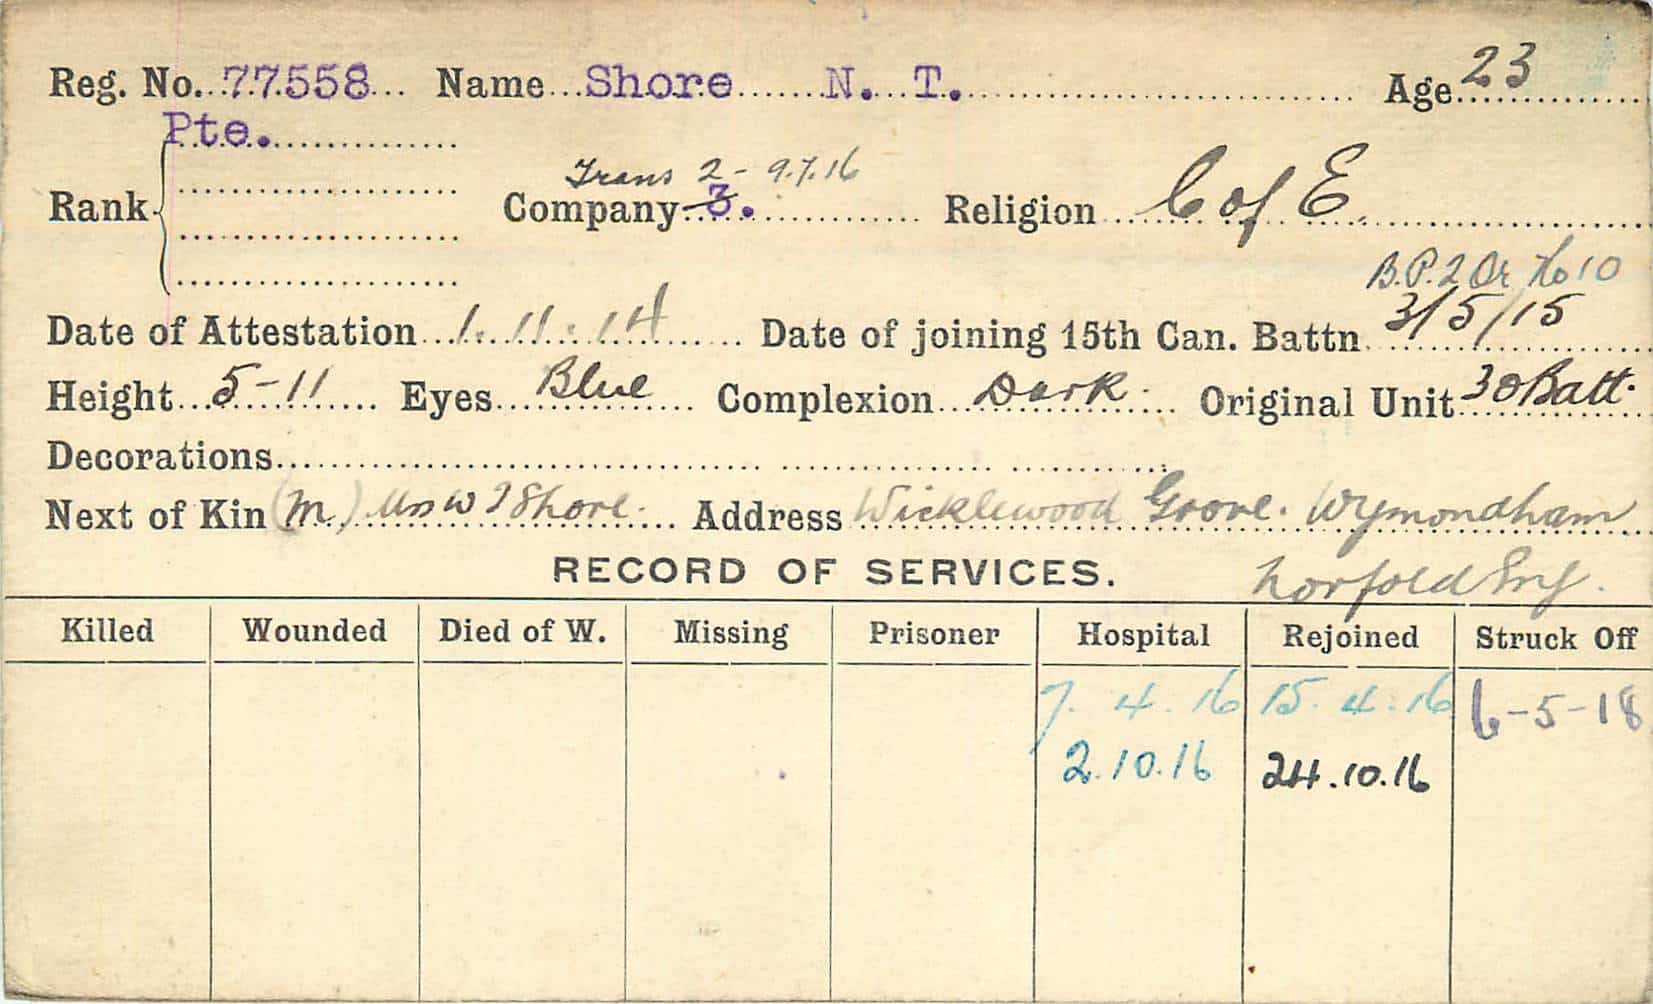 Reg. No. 77558 Name Shore N. T. Age 23
Pte.
Trans 2 - 9.7.16
Rank Company 3. Religion C of E.
B.P. 2 Or No 10
Date of Attestation 1.11.14 Date of joining 15th Can. Battn 3/5/15
Height 5-11 Eyes Blue Complexion Dark Original Unit 30 Batt.
Decorations
Next of Kin (M.) Mrs W J Shore. Address Wicklewood Grove. Wymondham
RECORD OF SERVICES. Norfold Eng.
Killed Wounded Died of W. Missing Prisoner Hospital Rejoined Struck Off
7.4.16 15.4.16 6-5-18
2.10.16 24.10.16